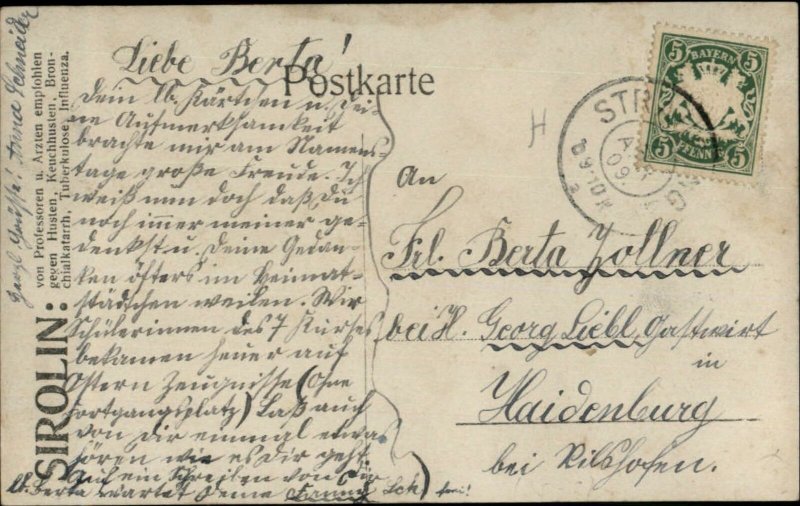 Postkarte
Liebe Berta!
Dein lb. Kärtchen u. Dei-
ne Aufmerksamkeit
brachte mir am Namens-
tage große Freude. Ich
weiß nun doch daß Du
noch immer meiner ge-
denkst u. Deine Gedan-
ken öfters im Heimat-
städtchen weilen. Wir
Schülerinnen des 7 Kurses
bekamen heuer auf
Ostern Zeugnisse (Ohne
Fortgangsplatz) Laß auch
von Dir einmal etwas
hören wie es Dir geht.
Auf ein Schreiben von Dir
lb. Berta wartet Deine Fanny Sch
Herzl. Grüsse! Anna Schneider
SIROLIN:
von Professoren u. Ärzten empfohlen
gegen Husten, Keuchhusten, Bron-
chialkatarrh, Tuberkulose, Influenza.
H
An
Frl. Berta Zollner
bei H. Georg Liebl Gastwirt
in
Haidenburg
bei Vilshofen.
BAYERN
5 5
5 5
PFENNIG
STR
09